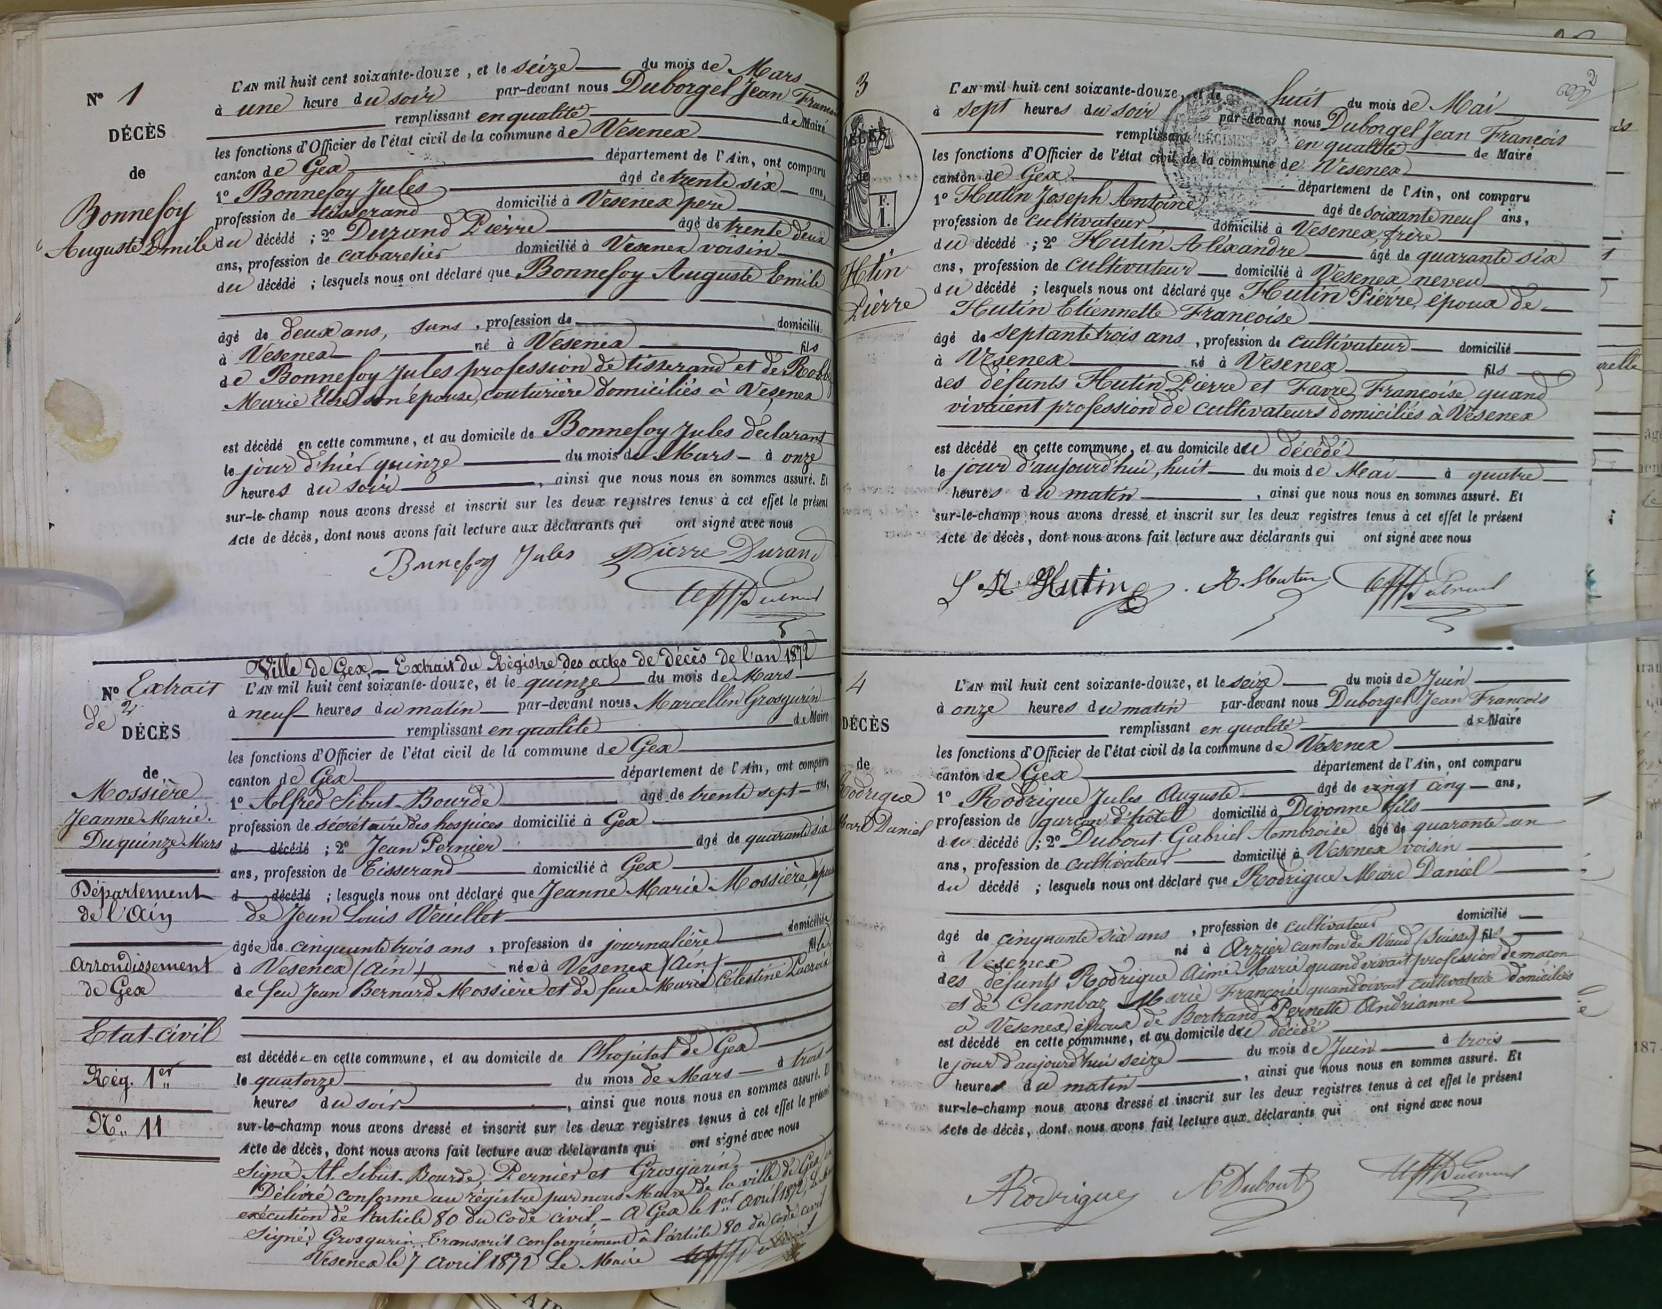 N° 1
DÉCÈS
de
Bonnefoy
Auguste Emile
L'AN mil huit cent soixante-douze, et le seize du mois de Mars
à une heure du soir par-devant nous Duborgel Jean
remplissant en qualité de Maire
les fonctions d'Officier de l'état civil de la commune de Vesenex
canton de Gex département de l'Ain, ont comparu
1° Bonnefoy Jules âgé de trente six ans,
profession de tisserand domicilié à Vesenex pere
du décédé ; 2° Durand Pierre âgé de trente deux
ans, profession de cabaretier domicilié à Vesenex voisin
du décédé ; lesquels nous ont déclaré que Bonnefoy Auguste Emile
âgé de deux ans, sans, profession de domicilié
à Vesenex né à Vesenex fils
de Bonnefoy Jules profession de tisserand et de
Marie son épouse, couturière domiciliés à Vesenex
est décédé en cette commune, et au domicile de Bonnefoy Jules declarant
le jour d'hier quinze du mois de Mars à onze
heures du soir, ainsi que nous nous en sommes assuré. Et
sur-le-champ nous avons dressé et inscrit sur les deux registres tenus à cet effet le présent
Acte de décès, dont nous avons fait lecture aux déclarants qui ont signé avec nous
Bonnefoy Jules Pierre Durand
N° Extrait
de
DÉCÈS
de
Mossière
Jeanne Marie.
Du quinze Mars
Département
de l'Ain
Arrondissement
de Gex
Etat-civil
Rég. 1er
N° 11
Ville de Gex _ Extrait du Régistre des actes de décès de l'an 1872
L'AN mil huit cent soixante-douze, et le quinze du mois de Mars
à neuf heures du matin par-devant nous Marcellin Grosgurin
remplissant en qualité de Maire
les fonctions d'Officier de l'état civil de la commune de Gex
canton de Gex département de l'Ain, ont comparu
1° Alfred Sibut-Bourde âgé de trente sept ans,
profession de sécrétaire des hospices domicilié à Gex
d décédé ; 2° Jean Pernier âgé de quarante six
ans, profession de Tisserand domicilié à Gex
d décédé ; lesquels nous ont déclaré que Jeanne Marie Mossière,
de Jean Louis Veuillet
âgée de cinquante trois ans, profession de journalière domiciliée
à Vesenex (Ain) née à Vesenex (Ain) fille
de feu Jean Bernard Mossière et de feue Marie Célestine Lacroix
est décédée en cette commune, et au domicile de l'hôpital de Gex
le quatorze du mois de Mars à trois
heures du soir, ainsi que nous nous en sommes assuré. Et
sur-le-champ nous avons dressé et inscrit sur les deux registres tenus à cet effet le présent
Acte de décès, dont nous avons fait lecture aux déclarants qui ont signé avec nous
Signé Al. Sibut-Bourde, Pernier et Grosgurin
Délivré conforme au régistre par nous Maire de la ville de Gex
exécution de l'article 80 du Code civil. _ A Gex le 1er avril 1872,
Signé, Grosgurin. Transcrit conformément à l'article 80 du Code civil
Vesenex le 7 avril 1872 Le Maire
3
DÉCÈS
de
F.
1.
Hutin
Pierre
L'AN mil huit cent soixante-douze, et le huit du mois de Mai
à sept heures du soir par-devant nous Duborgel Jean François
remplissant en qualité de Maire
les fonctions d'Officier de l'état civil de la commune de Vesenex
canton de Gex département de l'Ain, ont comparu
1° Hutin Joseph Antoine âgé de soixante neuf ans,
profession de cultivateur domicilié à Vesenex frère
du décédé ; 2° Hutin Aléxandre âgé de quarante six
ans, profession de cultivateur domicilié à Vesenex neveu
du décédé ; lesquels nous ont déclaré que Hutin Pierre, époux de
Hutin Etiennette Françoise
âgé de septante trois ans, profession de cultivateur domicilié
à Vesenex né à Vesenex fils
des défunts Hutin Pierre et Favre Françoise, quand
vivaient profession de cultivateurs domiciliés à Vesenex
est décédé en cette commune, et au domicile du décédé
le jour d'aujourd'hui, huit du mois de Mai à quatre
heures du matin, ainsi que nous nous en sommes assuré. Et
sur-le-champ nous avons dressé et inscrit sur les deux registres tenus à cet effet le présent
Acte de décès, dont nous avons fait lecture aux déclarants qui ont signé avec nous
Hutin A. Hutin
4
DÉCÈS
de
Rodrigue
Marc Daniel
L'AN mil huit cent soixante-douze, et le seize du mois de Juin
à onze heures du matin par-devant nous Duborgel Jean François
remplissant en qualité de Maire
les fonctions d'Officier de l'état civil de la commune de Vesenex
canton de Gex département de l'Ain, ont comparu
1° Rodrigue Jules Auguste âgé de vingt cinq ans,
profession de garçon d'hôtel domicilié à Divonne fils
du décédé ; 2° Dubout Gabriel Ambroise âgé de quarante un
ans, profession de cultivateur domicilié à Vesenex voisin
du décédé ; lesquels nous ont déclaré que Rodrigue Marc Daniel
âgé de cinquante six ans, profession de cultivateur domicilié
à Vesenex né à Arzier canton de Vaud (Suisse) fils
des défunts Rodrigue Aimé Marie quand vivait profession de maçon
et de Chambaz Marie Françoise quand vivait cultivatrice domiciliés
à Vesenex, époux de Bertrand Pernette Andrianne
est décédé en cette commune, et au domicile du décédé
le jour d'aujourd'hui seize du mois de Juin à trois
heures du matin, ainsi que nous nous en sommes assuré. Et
sur-le-champ nous avons dressé et inscrit sur les deux registres tenus à cet effet le présent
Acte de décès, dont nous avons fait lecture aux déclarants qui ont signé avec nous
Rodrigue Dubout